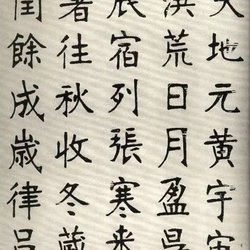 天地元黄宇宙
洪荒日月盈昃
辰宿列張寒来
暑往秋收冬藏
閏餘成歳律呂